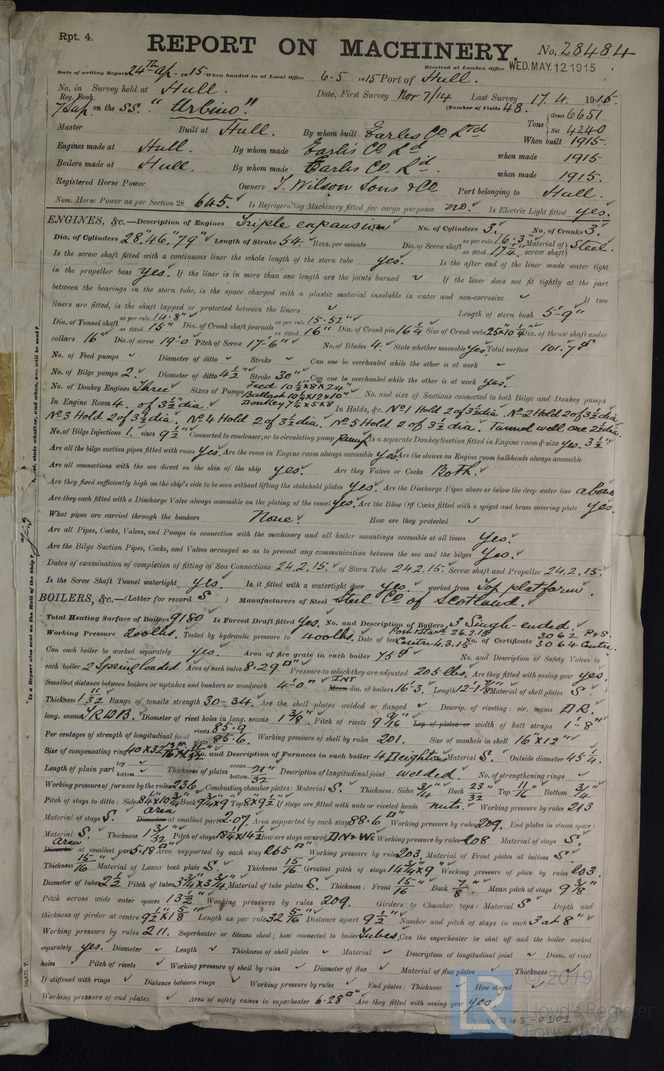 Rpt. 4.
REPORT ON MACHINERY.
No. 28484
Received at London Office WED. MAY. 12 1915
Date of writing Report 24th Ap. 1915 When handed in at Local Office 6.5 1915 Port of Hull.
No. in Survey held at Hull. Date, First Survey Nov 7/14 Last Survey 17.4. 1915.
Reg. Book.
7 Sup. on the SS. "Urbino" (Number of Visits 48.
Tons Gross 6651
Net 4240
Master Built at Hull. By whom built Earles Co Ltd When built 1915.
Engines made at Hull. By whom made Earles Co Ld when made 1915
Boilers made at Hull. By whom made Earles Co Ld. when made 1915.
Registered Horse Power Owners T. Wilson Sons & Co Port belonging to Hull.
Nom. Horse Power as per Section 28 645. Is Refrigerating Machinery fitted for cargo purposes no. Is Electric Light fitted yes.
ENGINES, &c.—Description of Engines Triple expansion No. of Cylinders 3. No. of Cranks 3.
Dia. of Cylinders 28" 46" 79" Length of Stroke 54. Revs. per minute Dia. of Screw shaft as per rule 16.3" as fitted 17¼" Material of screw shaft Steel.
Is the screw shaft fitted with a continuous liner the whole length of the stern tube yes. Is the after end of the liner made water tight
in the propeller boss yes. If the liner is in more than one length are the joints burned If the liner does not fit tightly at the part
between the bearings in the stern tube, is the space charged with a plastic material insoluble in water and non-corrosive If two
liners are fitted, is the shaft lapped or protected between the liners Length of stern bush 5'-9"
Dia. of Tunnel shaft as per rule 14.8" as fitted 15" Dia. of Crank shaft journals as per rule 15.52" as fitted 16" Dia. of Crank pin 16½ Size of Crank webs 25"x10½ Dia. of thrust shaft under
collars 16" Dia. of screw 19.0 Pitch of Screw 17'-6" No. of Blades 4 State whether moveable yes Total surface 101.7
No. of Feed pumps Diameter of ditto Stroke Can one be overhauled while the other is at work
No. of Bilge pumps 2. Diameter of ditto 4½ Stroke 30" Can one be overhauled while the other is at work yes.
No. of Donkey Engines Three Sizes of Pumps Feed 10½x8x24" Ballast 10½x12x10" Donkey 7½x5x8 No. and size of Suctions connected to both Bilge and Donkey pumps
In Engine Room 4. of 3½ dia. In Holds, &c. No1 Hold 2 of 3½ dia. No2 Hold 2 of 3½ dia.
No 3 Hold 2 of 3½ dia. No 4 Hold 2 of 3½ dia. No 5 Hold 2 of 3½ dia. Tunnel well one 2½ dia.
No. of Bilge Injections 1. sizes 9½" Connected to condenser, or to circulating pump Pump Is a separate Donkey Suction fitted in Engine room & size yes. 3½"
Are all the bilge suction pipes fitted with roses yes. Are the roses in Engine room always accessible yes. Are the sluices on Engine room bulkheads always accessible
Are all connections with the sea direct on the skin of the ship yes. Are they Valves or Cocks Both.
Are they fixed sufficiently high on the ship's side to be seen without lifting the stokehold plates yes. Are the Discharge Pipes above or below the deep water line above
Are they each fitted with a Discharge Valve always accessible on the plating of the vessel yes. Are the Blow Off Cocks fitted with a spigot and brass covering plate yes.
What pipes are carried through the bunkers None. How are they protected
Are all Pipes, Cocks, Valves, and Pumps in connection with the machinery and all boiler mountings accessible at all times Yes.
Are the Bilge Suction Pipes, Cocks, and Valves arranged so as to prevent any communication between the sea and the bilges Yes.
Dates of examination of completion of fitting of Sea Connections 24.2.15. of Stern Tube 24.2.15. Screw shaft and Propeller 24.2.15.
Is the Screw Shaft Tunnel watertight yes. Is it fitted with a watertight door yes. worked from Top platform.
BOILERS, &c.—(Letter for record S) Manufacturers of Steel Steel Co of Scotland.
Total Heating Surface of Boilers 9180 Is Forced Draft fitted Yes. No. and Description of Boilers 3 Single-ended.
Working Pressure 200 lbs. Tested by hydraulic pressure to 400 lbs. Date of test Port & Starb 26.2.15 Centre 4.3.15 No. of Certificate 3062 P&S. 3064 Centre.
Can each boiler be worked separately yes. Area of fire grate in each boiler 75 No. and Description of Safety Valves to
each boiler 2 Spring loaded Area of each valve 8.29 Pressure to which they are adjusted 205 lbs. Are they fitted with easing gear yes.
Smallest distance between boilers or uptakes and bunkers or woodwork 4'-0" INT Mean dia. of boilers 16'-3. Length 12-1⅛ Material of shell plates S
Thickness 1 11/32 Range of tensile strength 30-34. Are the shell plates welded or flanged Descrip. of riveting: cir. seams D.R.
long. seams T.R.D.B. Diameter of rivet holes in long. seams 1⅜" Pitch of rivets 9 9/16 Lap of plates or width of butt straps 1'-8"
Per centages of strength of longitudinal joint rivets 85.9 plate 85.6. Working pressure of shell by rules 201. Size of manhole in shell 16"x12"
Size of compensating ring No. and Description of Furnaces in each boiler 4 Deighton Material S. Outside diameter 45¼.
Length of plain part top bottom Thickness of plates crown bottom 21/32 Description of longitudinal joint welded. No. of strengthening rings
Working pressure of furnace by the rules 236. Combustion chamber plates: Material S. Thickness: Sides ¾ Back 23/32 Top 11/16 Bottom ¾
Pitch of stays to ditto: Sides Back Top 8x9½ If stays are fitted with nuts or riveted heads nuts. Working pressure by rules 213
Material of stays S. area Diameter at smallest part 2.07. Area supported by each stay 88.6 Working pressure by rules 209. End plates in steam space:
Material S. Thickness 1 3/32 Pitch of stays How are stays secured D.N & W. Working pressure by rules 208 Material of stays S.
Area Diameter at smallest part 5.18 Area supported by each stay 265 Working pressure by rules 203. Material of Front plates at bottom S.
Thickness 15/16 Material of Lower back plate S. Thickness 15/16 Greatest pitch of stays 14¾x9 Working pressure of plate by rules 203.
Diameter of tubes 2½ Pitch of tubes 3¾x3¾ Material of tube plates S. Thickness: Front 15/16 Back ⅞ Mean pitch of stays 9⅜
Pitch across wide water spaces 13½ Working pressures by rules 209. Girders to Chamber tops: Material S Depth and
thickness of girder at centre 9½x1⅝ Length as per rule 32 5/16 Distance apart 9½" Number and pitch of stays in each 3 at 8"
Working pressure by rules 211. Superheater or Steam chest; how connected to boiler Tubes. Can the superheater be shut off and the boiler worked
separately yes. Diameter Length Thickness of shell plates Material Description of longitudinal joint Diam. of rivet
holes Pitch of rivets Working pressure of shell by rules Diameter of flue Material of flue plates Thickness
If stiffened with rings Distance between rings Working pressure by rules End plates: Thickness How stayed
Working pressure of end plates Area of safety valves to superheater 6.28 Are they fitted with easing gear yes.
© 2019
Lloyd's Register
Foundation
W945-0201